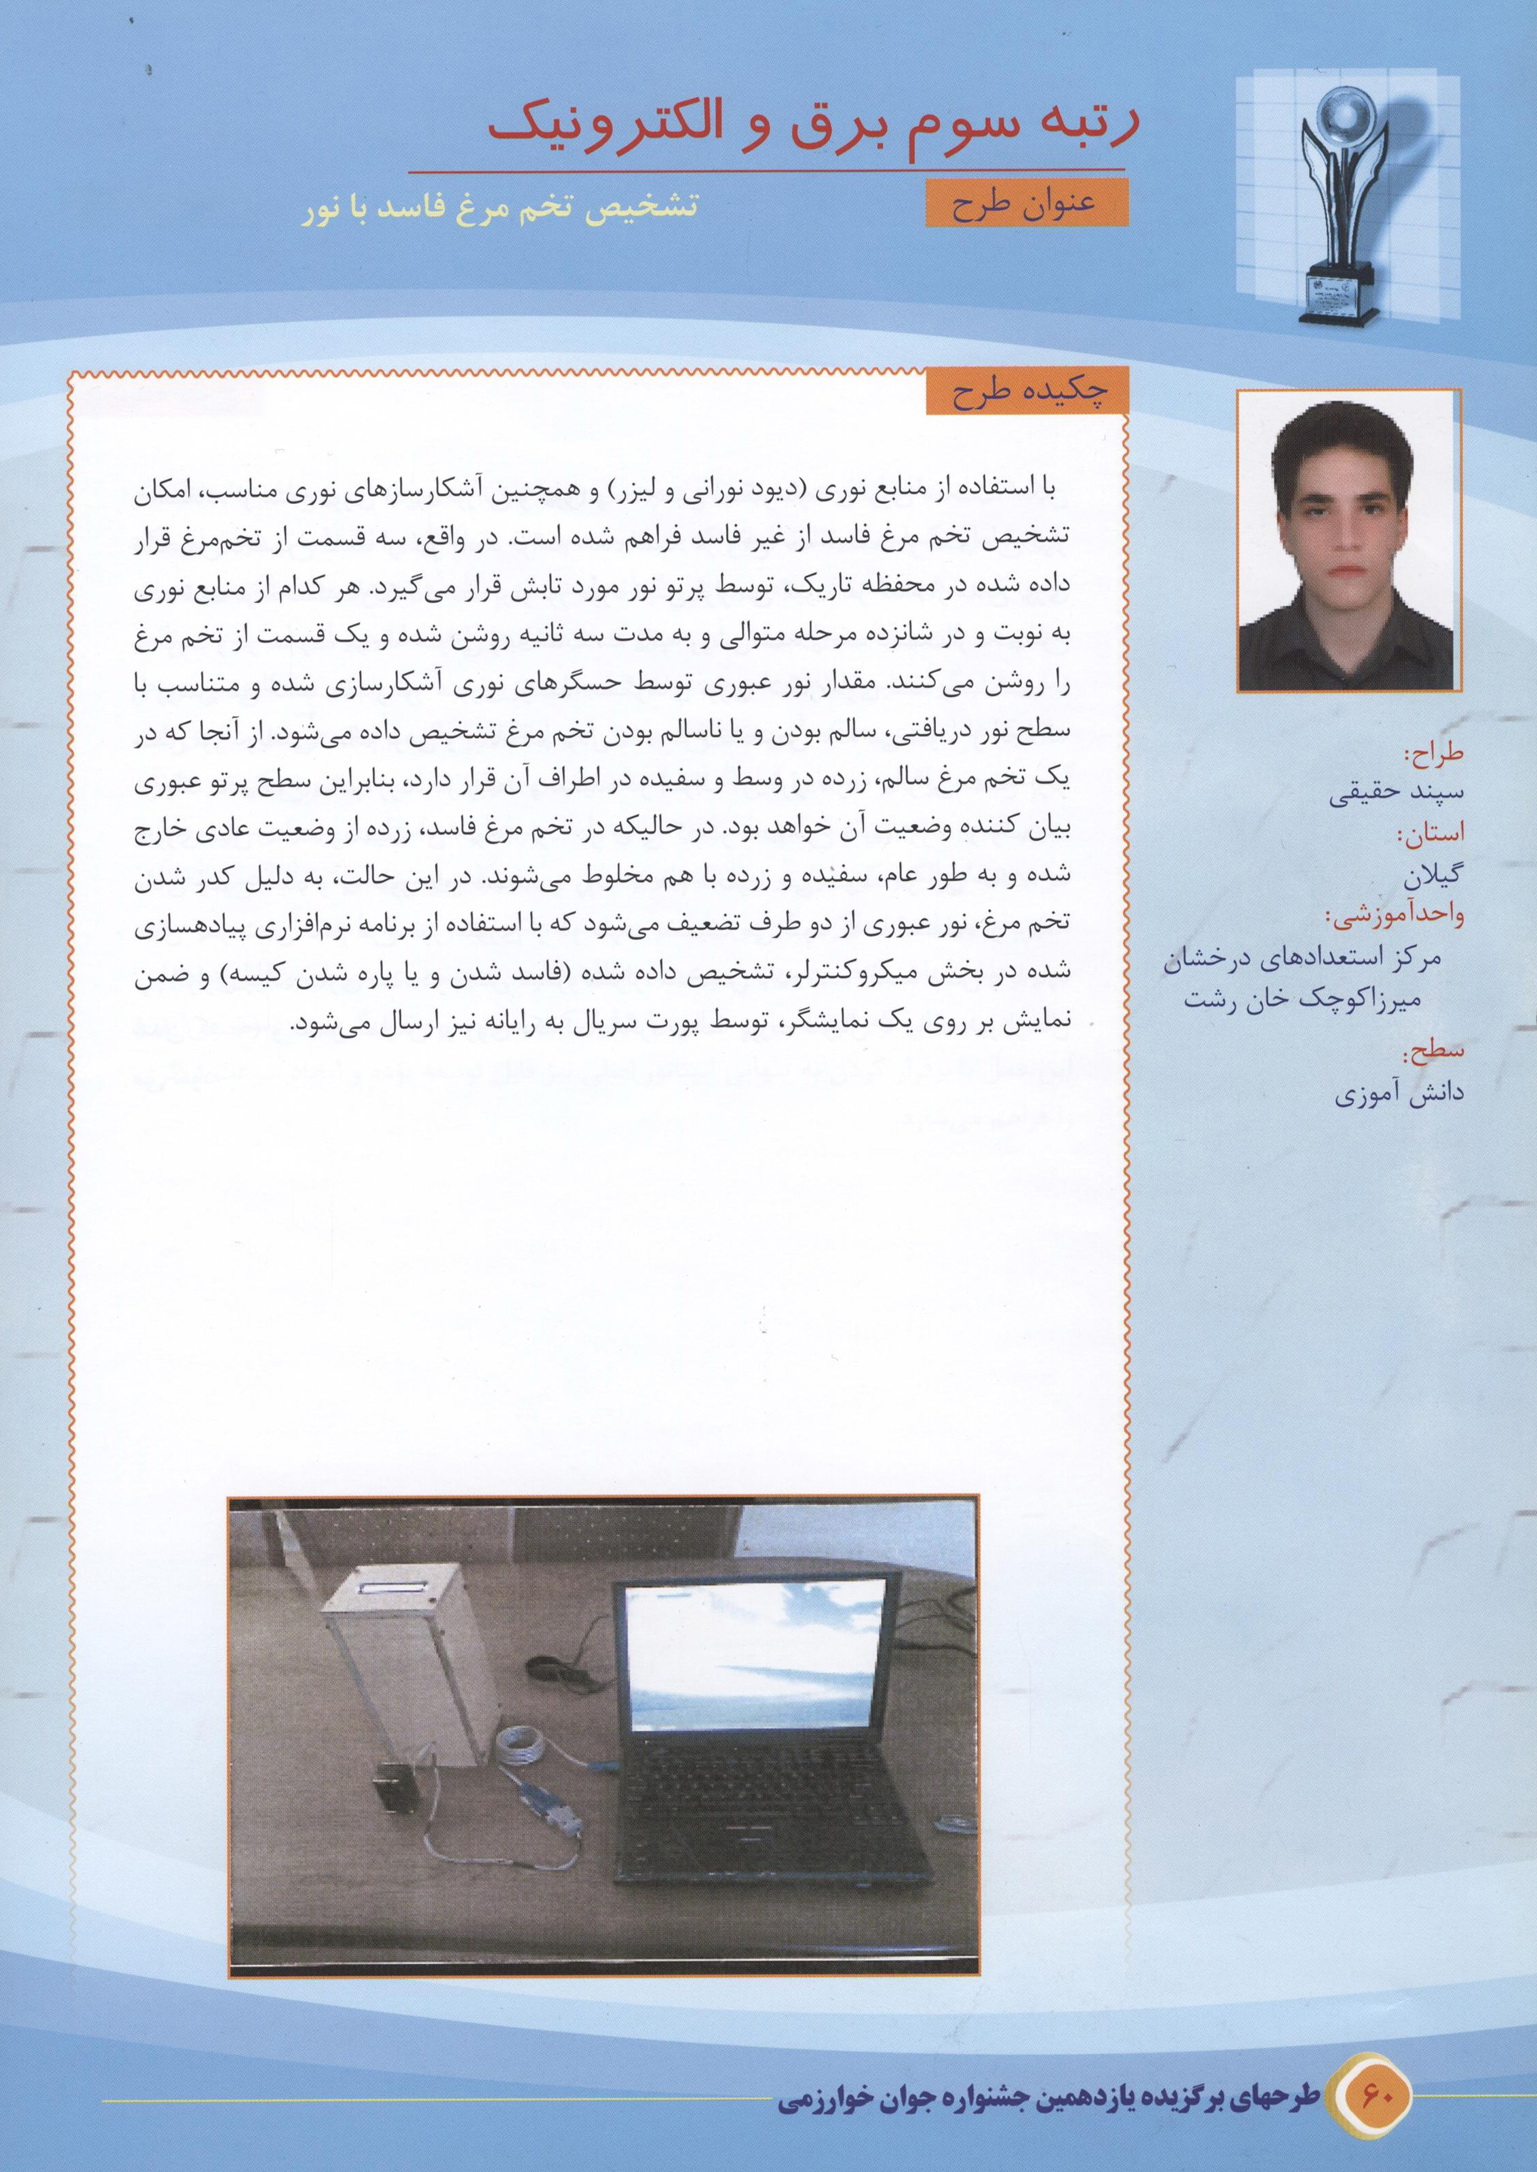 رتبه سوم برق و الکترونیک
عنوان طرح
تشخیص تخم مرغ فاسد با نور
چکیده طرح
با استفاده از منابع نوری (دیود نورانی و لیزر) و همچنین آشکارسازهای نوری مناسب، امکان
تشخیص تخم مرغ فاسد از غیر فاسد فراهم شده است. در واقع، سه قسمت از تخم‌مرغ قرار
داده شده در محفظه تاریک، توسط پرتو نور مورد تابش قرار می‌گیرد. هر کدام از منابع نوری
به نوبت و در شانزده مرحله متوالی و به مدت سه ثانیه روشن شده و یک قسمت از تخم مرغ
را روشن می‌کنند. مقدار نور عبوری توسط حسگرهای نوری آشکارسازی شده و متناسب با
سطح نور دریافتی، سالم بودن و یا ناسالم بودن تخم مرغ تشخیص داده می‌شود. از آنجا که در
یک تخم مرغ سالم، زرده در وسط و سفیده در اطراف آن قرار دارد، بنابراین سطح پرتو عبوری
بیان کننده وضعیت آن خواهد بود. در حالیکه در تخم مرغ فاسد، زرده از وضعیت عادی خارج
شده و به طور عام، سفیده و زرده با هم مخلوط می‌شوند. در این حالت، به دلیل کدر شدن
تخم مرغ، نور عبوری از دو طرف تضعیف می‌شود که با استفاده از برنامه نرم‌افزاری پیادهسازی
شده در بخش میکروکنترلر، تشخیص داده شده (فاسد شدن و یا پاره شدن کیسه) و ضمن
نمایش بر روی یک نمایشگر، توسط پورت سریال به رایانه نیز ارسال می‌شود.
طراح:
سپند حقیقی
استان:
گیلان
واحدآموزشی:
مرکز استعدادهای درخشان
میرزاکوچک خان رشت
سطح:
دانش آموزی
۶۰
طرحهای برگزیده یازدهمین جشنواره جوان خوارزمی